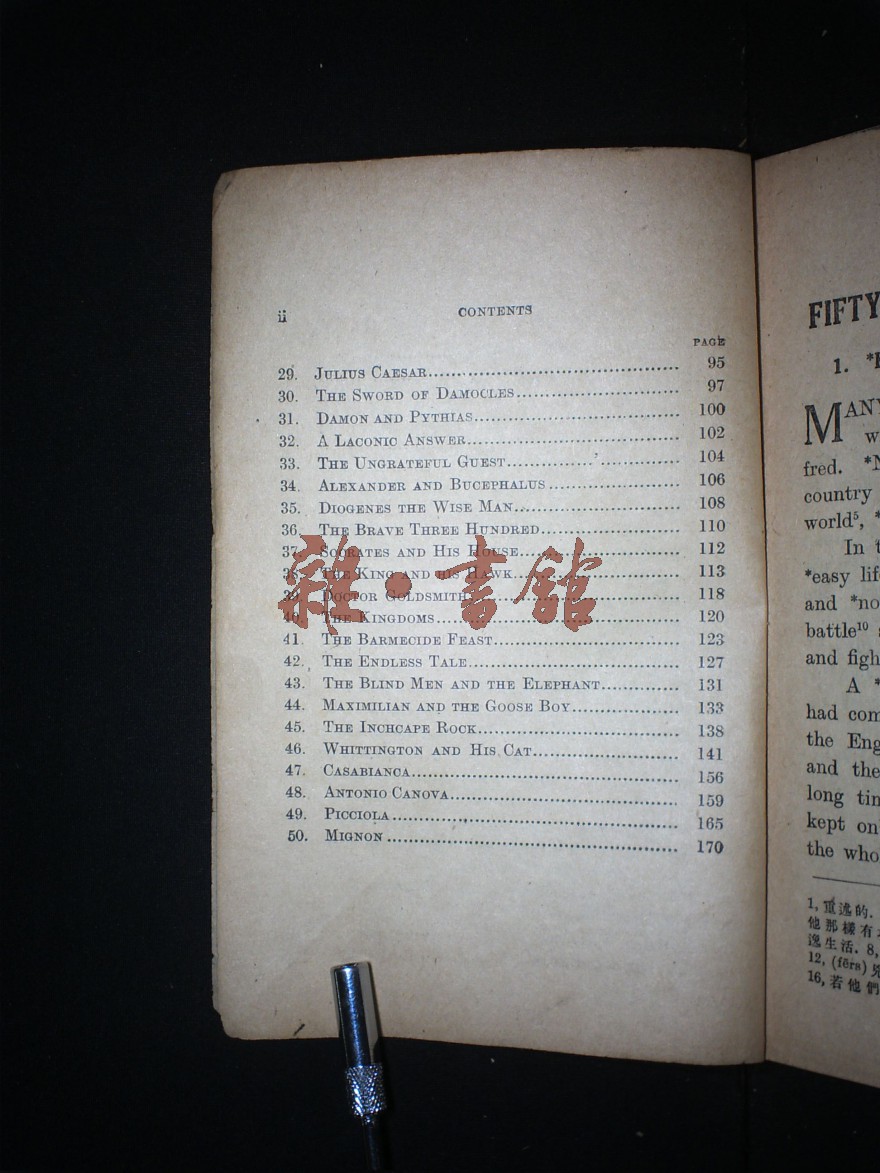 ii CONTENTS
PAGE
29. JULIUS CAESAR 95
30. THE SWORD OF DAMOCLES 97
31. DAMON AND PYTHIAS 100
32. A LACONIC ANSWER 102
33. THE UNGRATEFUL GUEST 104
34. ALEXANDER AND BUCEPHALUS 106
35. DIOGENES THE WISE MAN 108
36. THE BRAVE THREE HUNDRED 110
37. SOCRATES AND HIS HOUSE 112
38. THE KING AND HIS HAWK 113
39. DOCTOR GOLDSMITH 118
40. THE KINGDOMS 120
41. THE BARMECIDE FEAST 123
42. THE ENDLESS TALE 127
43. THE BLIND MEN AND THE ELEPHANT 131
44. MAXIMILIAN AND THE GOOSE BOY 133
45. THE INCHCAPE ROCK 138
46. WHITTINGTON AND HIS CAT 141
47. CASABIANCA 156
48. ANTONIO CANOVA 159
49. PICCIOLA 165
50. MIGNON 170
雜·書館
FIFTY
1.
MANY
fred.
country
world⁵,
In
*easy
and
battle¹⁰
and
A
had
the
and the
long
kept
the
1,
他那樣有
逸生活. 8,
12, (fērs)
16, 若他們